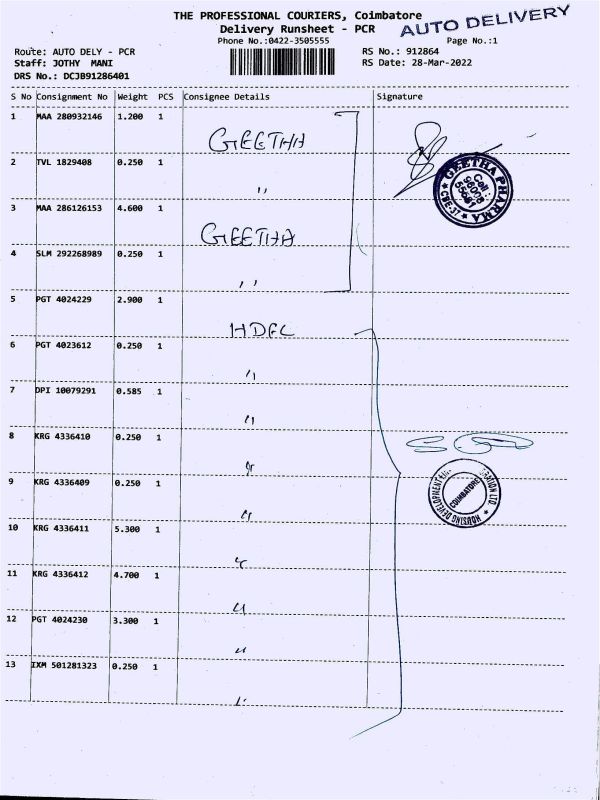 THE PROFESSIONAL COURIERS, Coimbatore
AUTO DELIVERY
Delivery Runsheet - PCR
Phone No.:0422-3505555
Page No.:1
Route: AUTO DELY - PCR
RS No.: 912864
Staff: JOTHY MANI
RS Date: 28-Mar-2022
DRS No.: DCJB91286401
S No Consignment No Weight PCS Consignee Details Signature
1 MAA 280932146 1.200 1 GEETHA
2 TVL 1829408 0.250 1 "
3 MAA 286126153 4.600 1 GEETHA
4 SLM 292268989 0.250 1 "
5 PGT 4024229 2.900 1 HDFC
6 PGT 4023612 0.250 1 "
7 DPI 10079291 0.585 1 "
8 KRG 4336410 0.250 1 "
9 KRG 4336409 0.250 1 "
10 KRG 4336411 5.300 1 "
11 KRG 4336412 4.700 1 "
12 PGT 4024230 3.300 1 "
13 IXM 501281323 0.250 1 "
GEETHA PHARMA
CBE-37
Cell :
HOUSING DEVELOPMENT
LTD
COIMBATORE